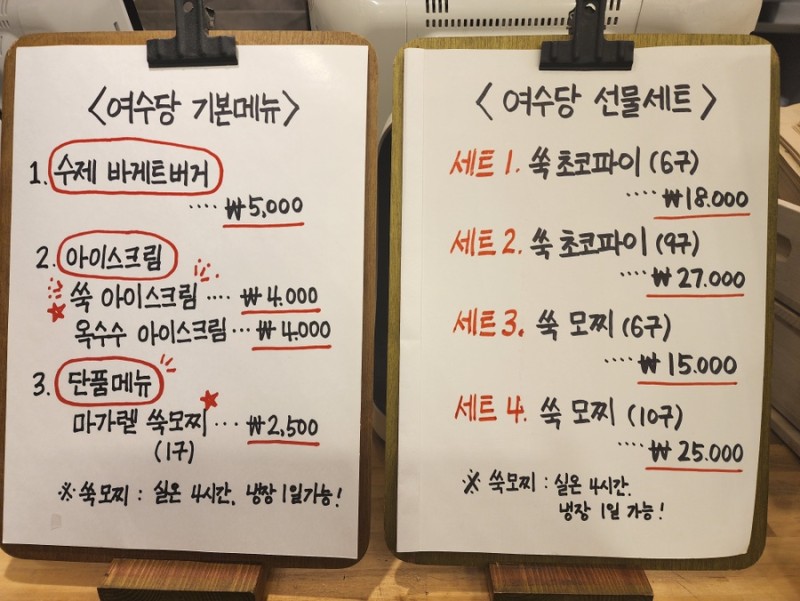 <여수당 기본메뉴>
1. 수제 바게트버거
···· ₩5,000
2. 아이스크림
쑥 아이스크림 ···· ₩4,000
옥수수 아이스크림 ··· ₩4,000
3. 단품메뉴
마가렡 쑥모찌 ··· ₩2,500
(1개)
※ 쑥모찌 : 실온 4시간, 냉장 1일가능!
<여수당 선물세트>
세트 1. 쑥 초코파이 (6개)
···· ₩18.000
세트 2. 쑥 초코파이 (9개)
···· ₩27.000
세트 3. 쑥 모찌 (6개)
···· ₩15.000
세트 4. 쑥 모찌 (10개)
···· ₩25.000
※ 쑥모찌 : 실온 4시간.
냉장 1일 가능!